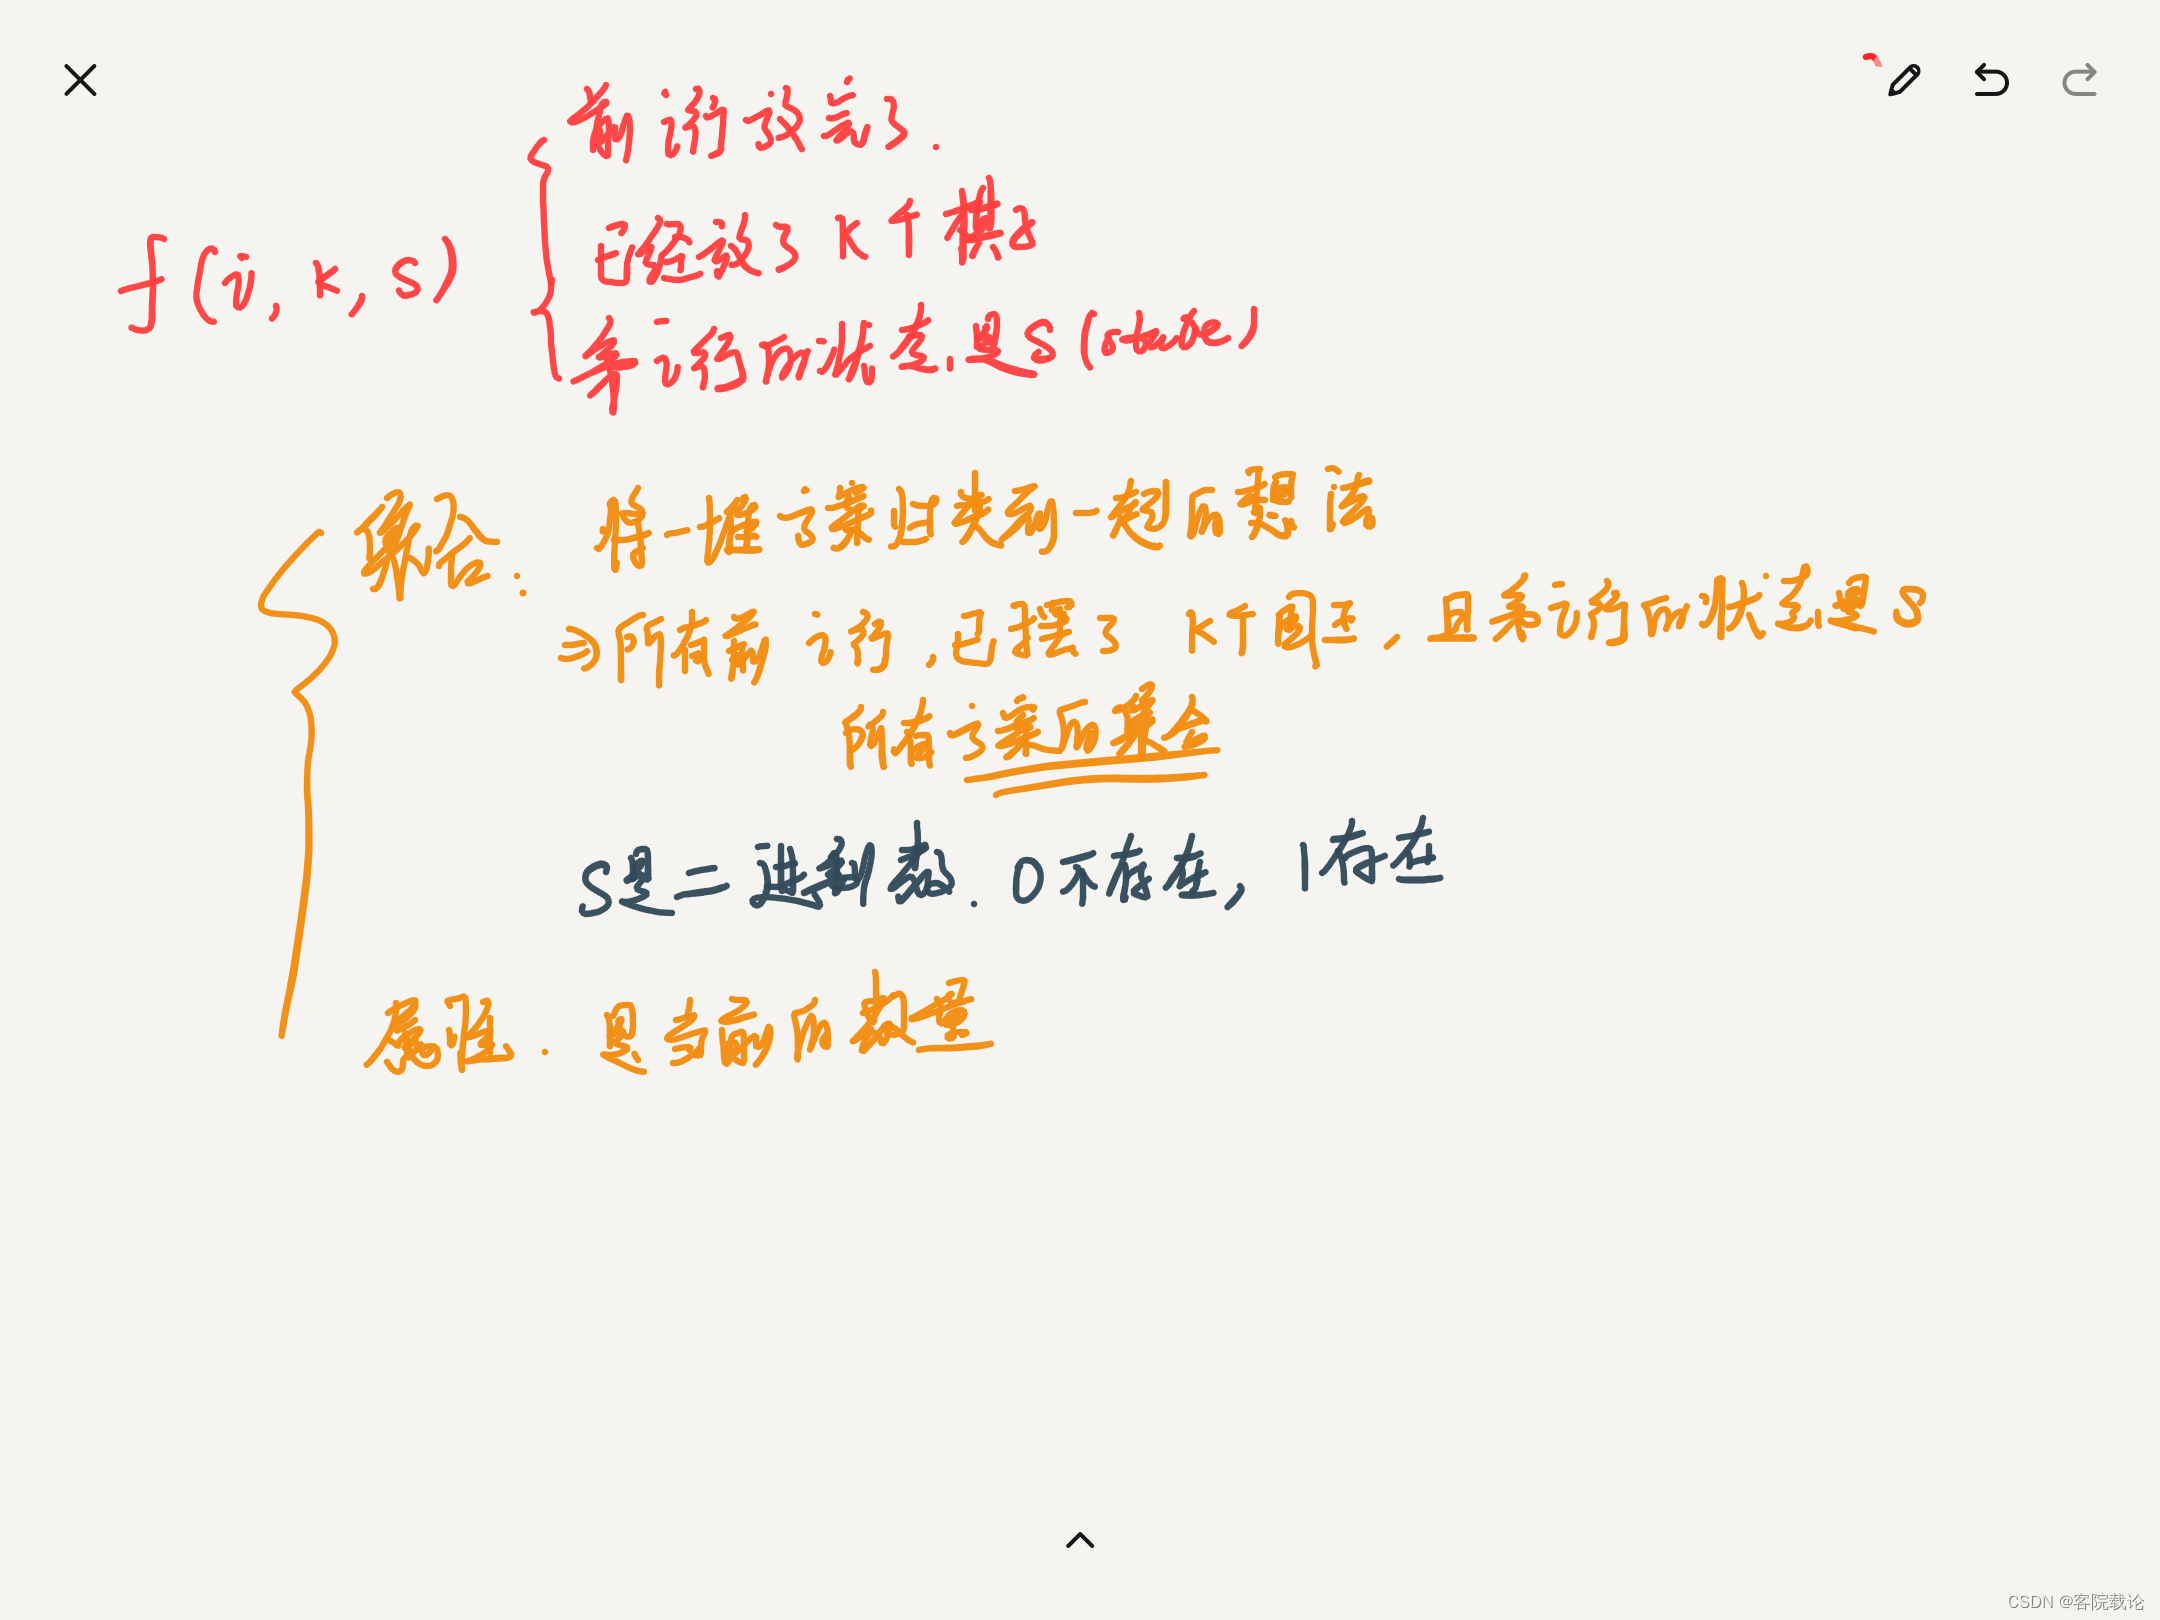 前i行放完了.
已经放了K个棋子
f(i, k, s)
第i行的状态是S(state)
集合: 将一堆方案归类到一起的想法
⇒所有前i行,已摆了K个国王,且第i行的状态是S
所有方案的集合
S是二进制数.0不存在,1存在
属性. 是当前的数量
CSDN @客院载论